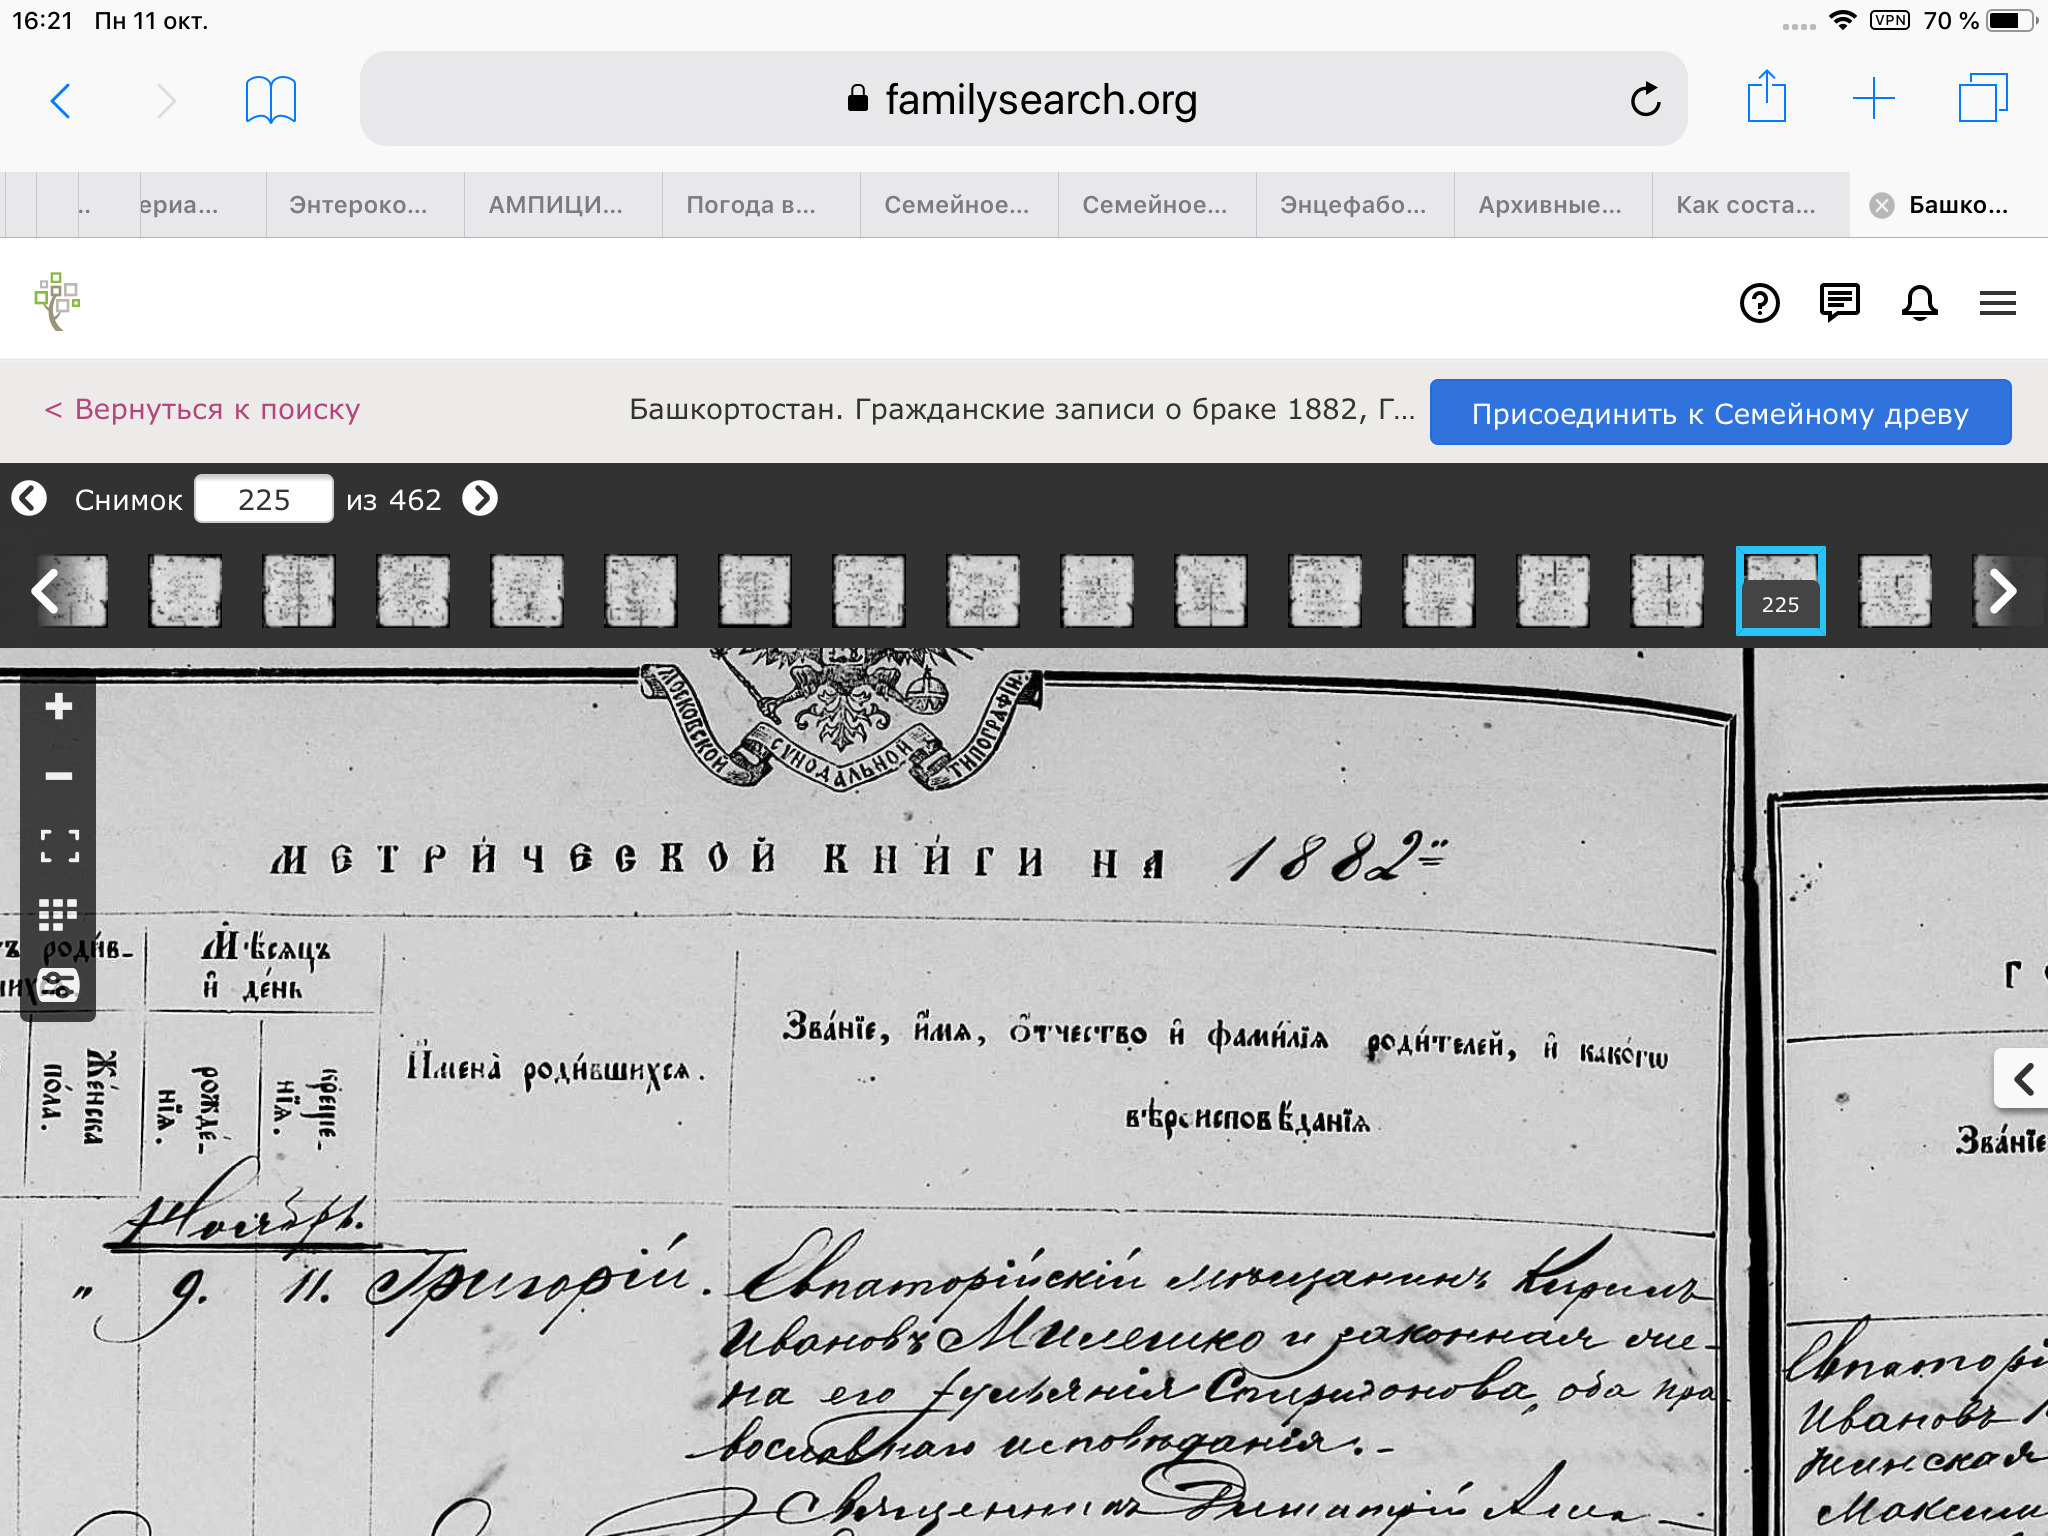 16:21 Пн 11 окт.
VPN 70 %
familysearch.org
..
ериа...
Энтероко...
АМПИЦИ...
Погода в...
Семейное...
Семейное...
Энцефабо...
Архивные...
Как соста...
Башко...
< Вернуться к поиску
Башкортостан. Гражданские записи о браке 1882, Г...
Присоединить к Семейному древу
Снимок 225 из 462
225
МОСКОВСКОЙ СУНОДАЛЬНОЙ ТИПОГРАФІИ
МЕТРИЧЕСКОЙ КНИГИ НА 1882
родив-
Мѣсяцъ
и день
Женска
пола.
рожде-
нїѧ.
креще-
нїѧ.
Имена родившихсѧ.
Званїе, имѧ, ѻтчество и фамилїѧ родителей, и какогѡ
вѣроисповѣданїѧ
Г
Званїе
Ноябрь.
" 9. 11. Григорій. Евпаторійскій мѣщанинъ Кирилъ
Ивановъ Милешко и законная же-
на его Іульянія Спиридонова, оба пра-
вославнаго исповѣданія.-
Священникъ Димитрій
Евпаторі
Ивановъ
Максим